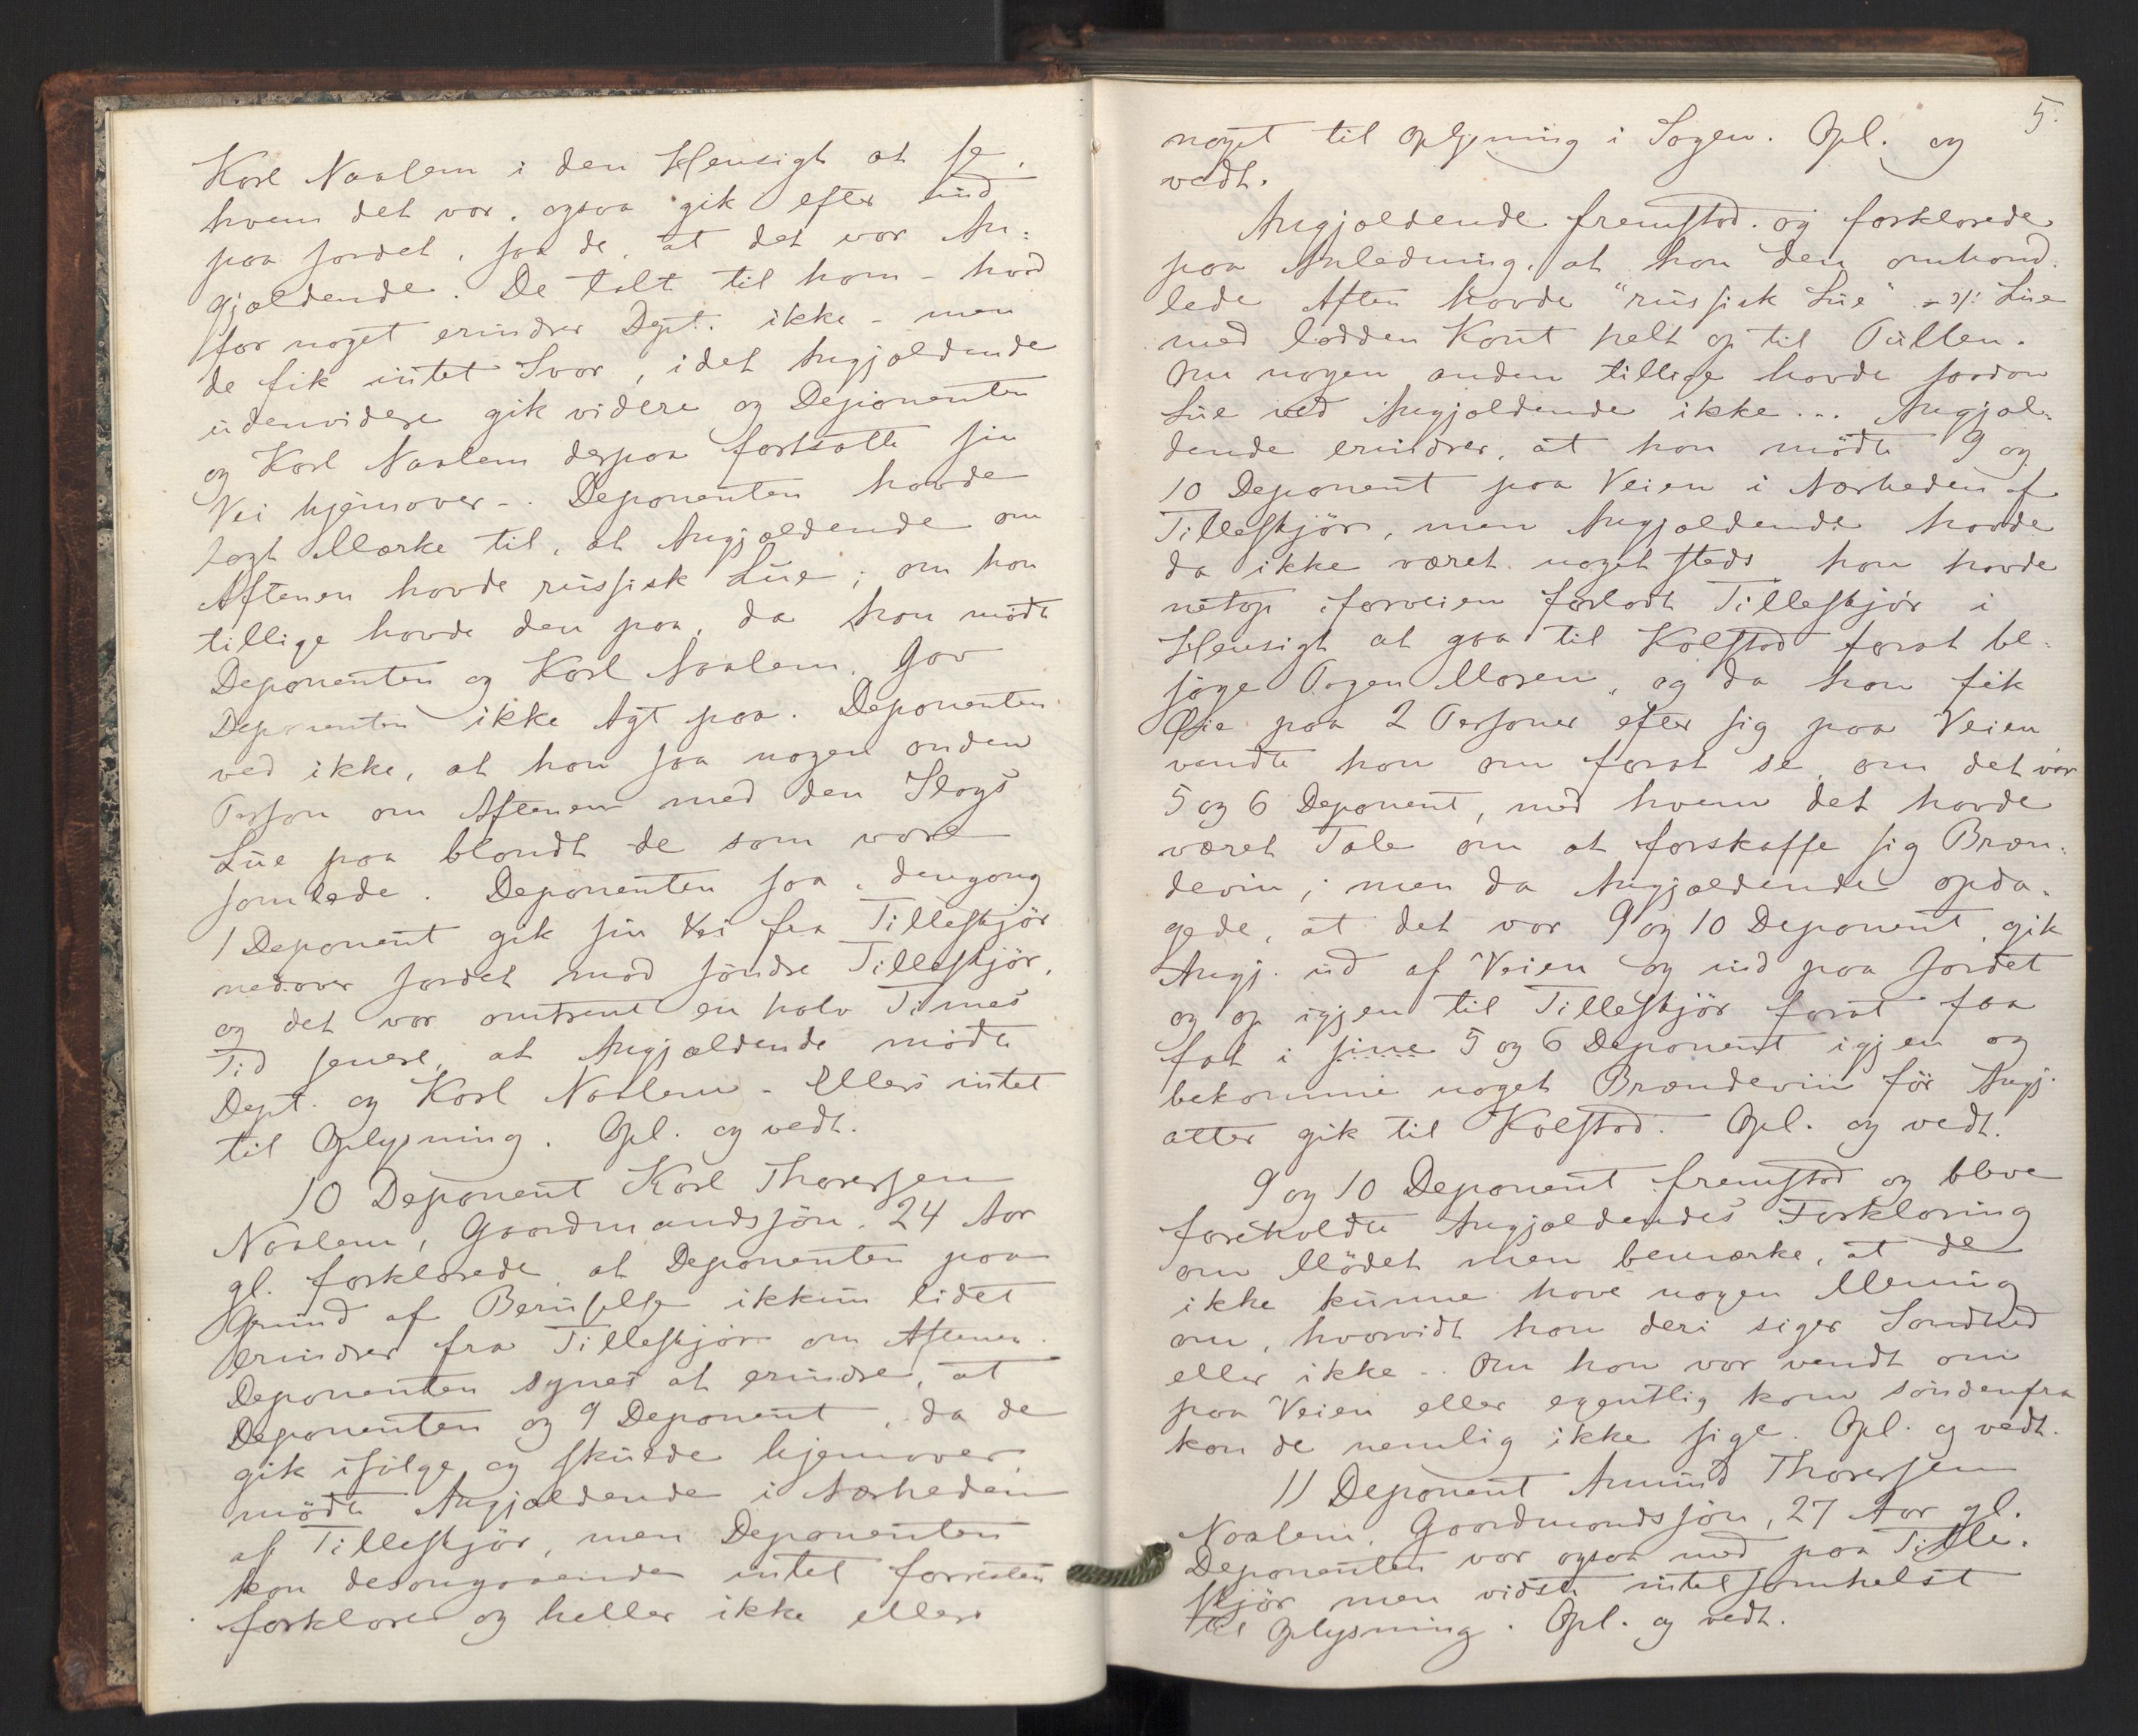 Karl Naalem i den Hensigt at se,
hvem det var, ogsaa gik efter ind
paa Jordet, saa de, at det var An-
gjældende. De talt til ham – hvad
for noget erindrer Dept. ikke – men
de fik intet Svar, idet Angjældende
udenvidere gik videre og Deponenten
og Karl Naalem derpaa fortsatte sin
Vei hjemover –. Deponenten havde
lagt Mærke til, at Angjældende om
Aftenen havde russisk Lue; om han
tillige havde den paa, da han mødte
Deponenten og Karl Naalem, gav
Deponenten ikke Agt paa. Deponenten
ved ikke, at han saa nogen anden
Person om Aftenen med den Slags
Lue paa blandt de som vare
samlede. Deponenten saa, dengang
1 Deponent gik sin Vei fra Tilleskjör
nedover Jordet mod söndre Tilleskjör,
og det var omtrent en halv Times
Tid senere, at Angjældende mödte
Dept. og Karl Naalem – Ellers intet
til Oplysning. Opl. og vedt.
10 Deponent Karl Thoresen
Naalem, Gaardmandssön, 24 Aar
gl. forklarede, at Deponenten paa
Grund af Beruselse ikkun lidet
erindrer fra Tilleskjör om Aftenen.
Deponenten synes at erindre, at
Deponenten og 9 Deponent, da de
gik ifölge og skulde hjemover,
mödte Angjældende i Nærheden
af Tilleskjör, men Deponenten
kan desangaaende intet forresten
forklare og heller ikke ellers
5.
noget til Oplysning i Sagen. Opl. og
vedt.
Angjældende fremstod og forklarede
paa Anledning, at han den omhand-
lede Aften havde "russisk Lue" – ɔ: Lue
med lodden Kant helt op til Pullen.
Om nogen anden tillige havde saadan
Lue ved Angjældende ikke... Angjæl-
dende erindrer, at han mödte 9 og
10 Deponent paa Veien i Nærheden af
Tilleskjör, men Angjældende havde
da ikke været noget steds han havde
netop iforveien forladt Tilleskjör i
Hensigt at gaa til Kolstad forat be-
söge Pigen Maren, og da han fik
Øie paa 2 Personer efter sig paa Veien
vendte han om forat se, om det var
5 og 6 Deponent, med hvem det havde
været Tale om at forskaffe sig Bræn-
devin; men da Angjældende opda-
gede, at det var 9 og 10 Deponent, gik
Angj. ud af Veien og ind paa Jordet
og op igjen til Tilleskjör forat faa
fat i sine 5 og 6 Deponent igjen og
bekomme noget Brændevin för Angj.
atter gik til Kolstad. Opl. og vedt.
9 og 10 Deponent fremstod og bleve
foreholdte Angjældendes Forklaring
om Mödet men bemærke, at de
ikke kunne have nogen Mening
om, hvorvidt han deri siger Sandhed
eller ikke –. Om han var vendt om
paa Veien eller egentlig kom söndenfra
kan de nemlig ikke sige. Opl. og vedt.
11 Deponent Amund Thoresen
Naalem, Gaardmandssön, 27 Aar gl.
Deponenten var ogsaa med paa Tille-
skjör men vidste intet somhelst
til Oplysning. Opl. og vedt.